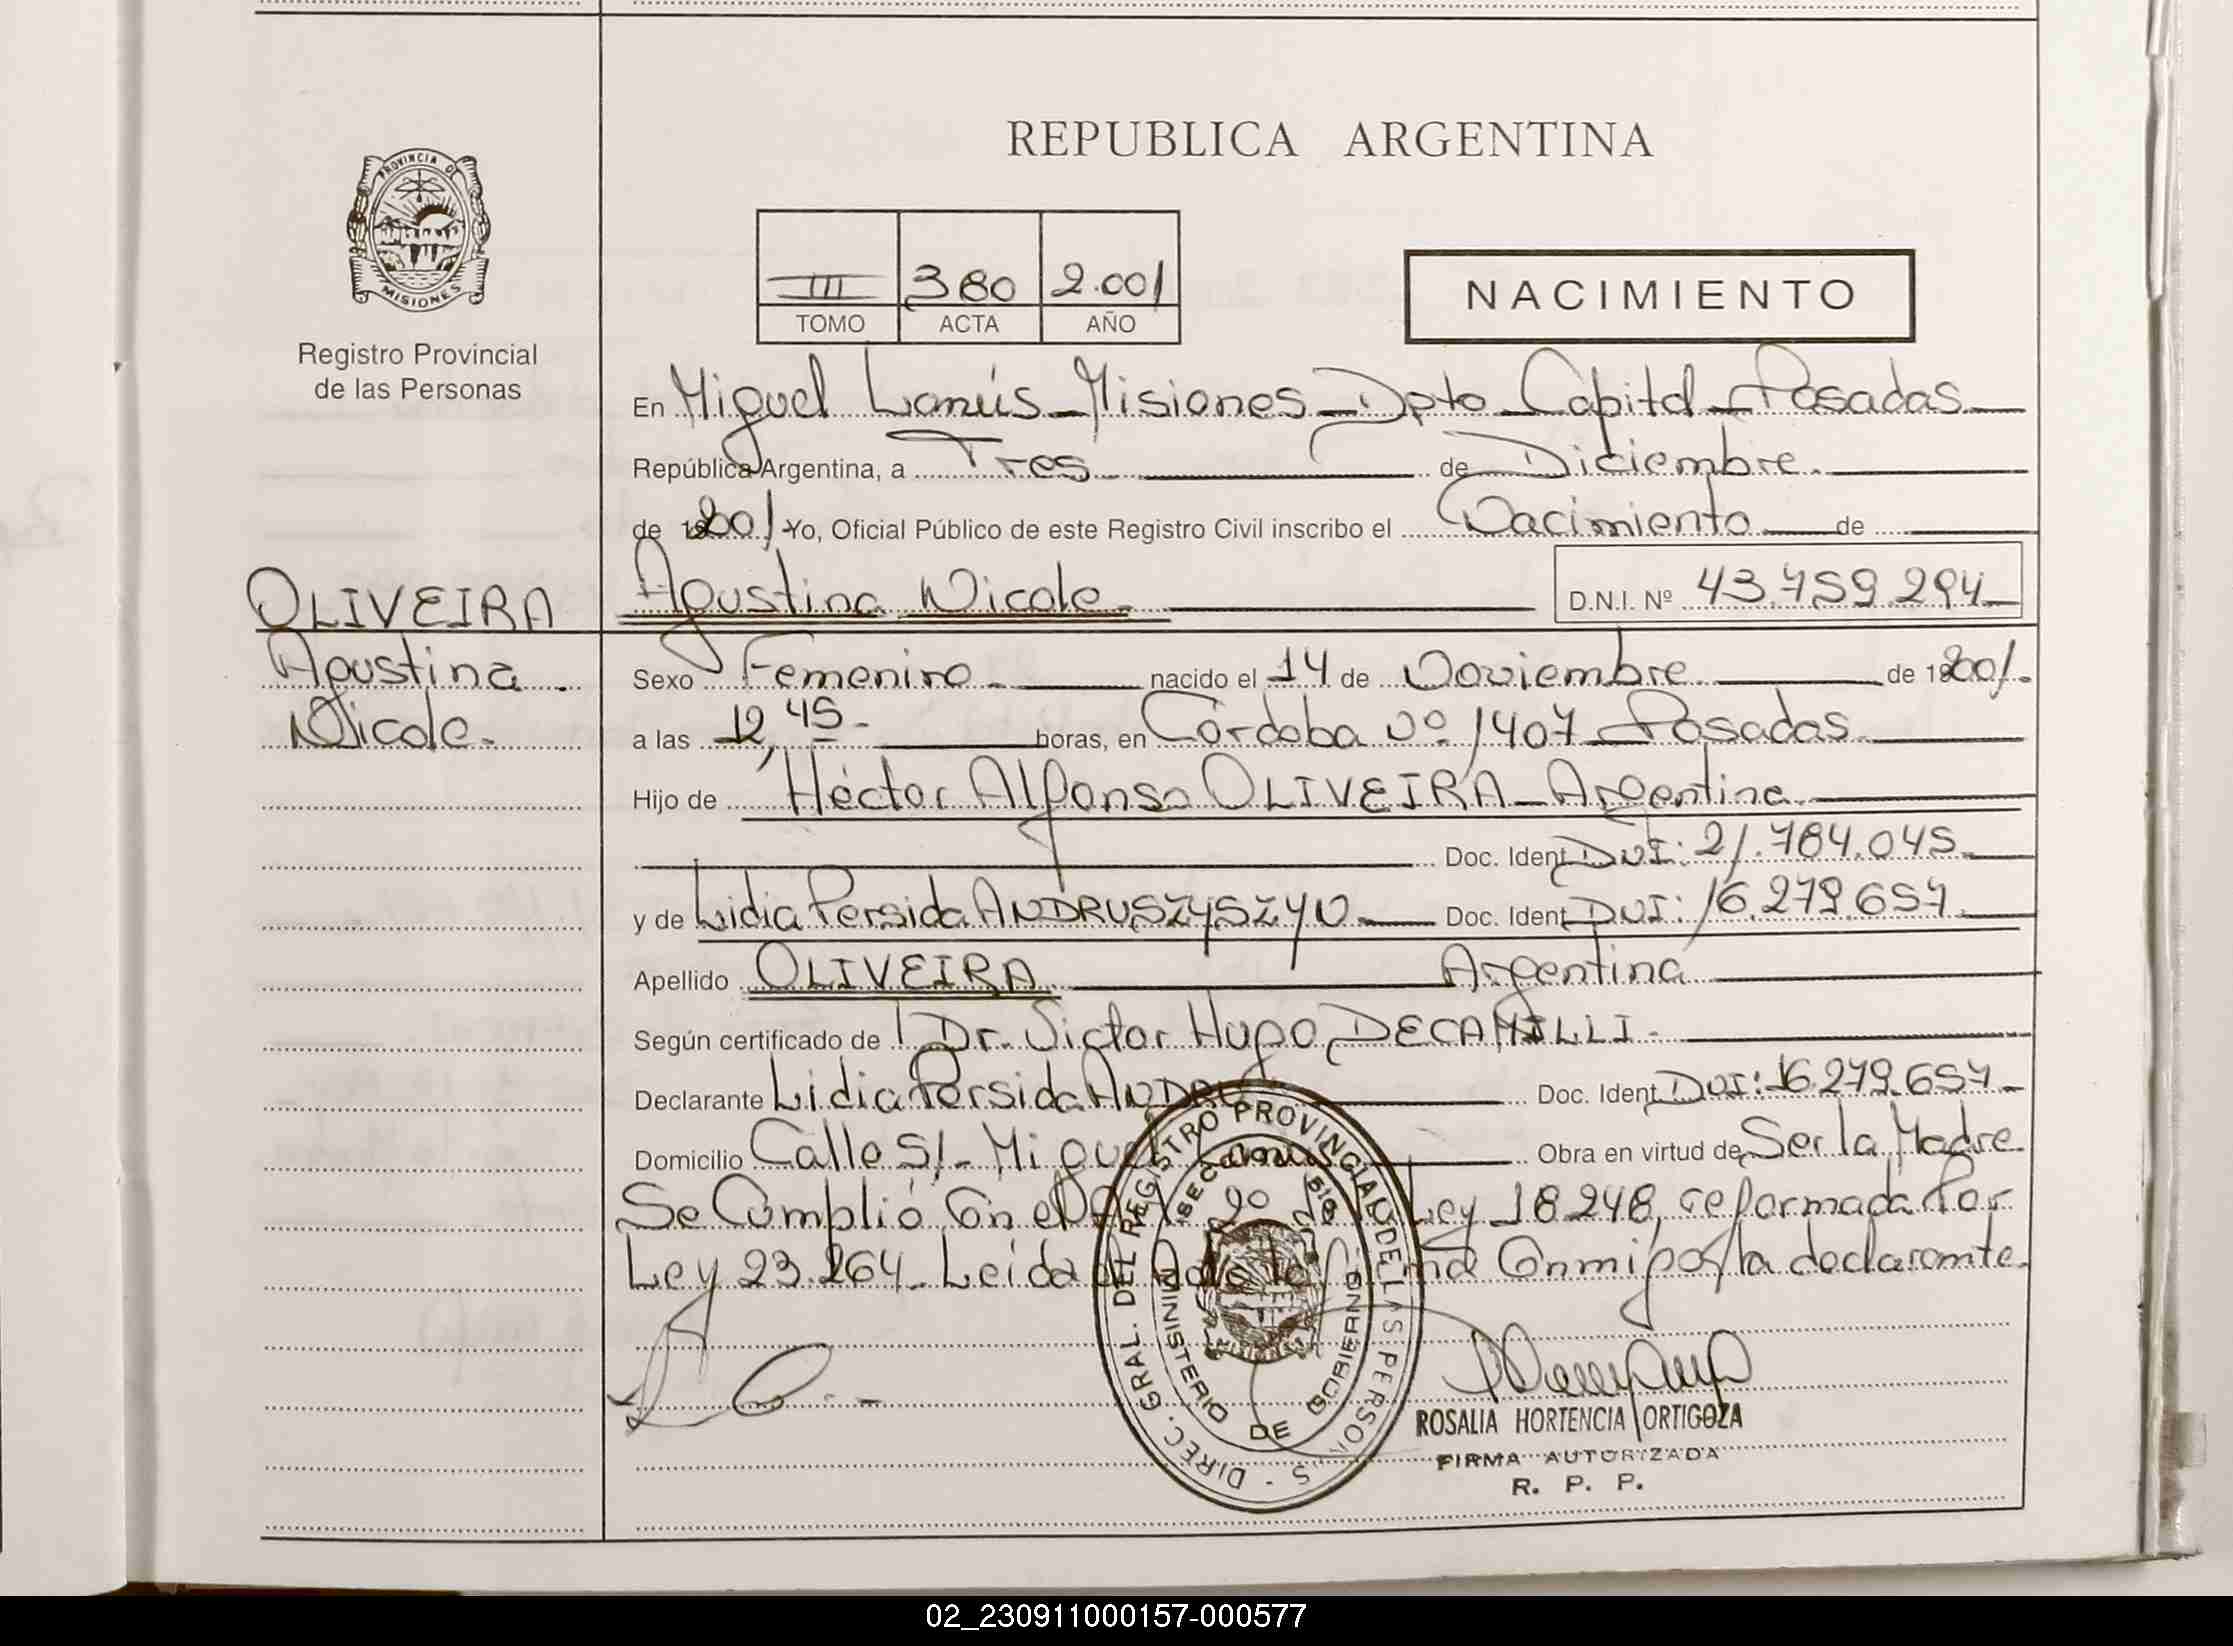 REPUBLICA ARGENTINA
PROVINCIA DE
MISIONES
Registro Provincial
de las Personas
III 380 2.001
TOMO ACTA AÑO
NACIMIENTO
En Miguel Lanús - Misiones - Dpto Capital - Posadas
República Argentina, a Tres de Diciembre
de 2001 Yo, Oficial Público de este Registro Civil inscribo el Nacimiento de
OLIVEIRA
Agustina Nicole
Agustina Nicole D.N.I. Nº 43.759.294
Sexo Femenino nacido el 14 de Noviembre de 2001.
a las 12,45 horas, en Córdoba Nº 1407 - Posadas
Hijo de Héctor Alfonso OLIVEIRA - Argentina
Doc. Ident DNI: 21.784.045
y de Lidia Persida ANDRUSZYSZYN Doc. Ident DNI: 16.279.657
Apellido OLIVEIRA Argentina
Según certificado de Dr. Victor Hugo DECAMILLI
Declarante Lidia Persida ANDRU Doc. Ident DNI: 16.279.657
Domicilio Calle S/- Miguel Lanús Obra en virtud de Ser la Madre
Se Cumplió Con el de la Ley 18.248, reformada Por
Ley 23.264. Leida el Acta la firma Conmigo la declarante.
DIREC. GRAL. DEL REGISTRO PROVINCIAL DE LAS PERSONAS
MINISTERIO DE GOBIERNO
ROSALIA HORTENCIA ORTIGOZA
FIRMA AUTORIZADA
R. P. P.
02_230911000157-000577